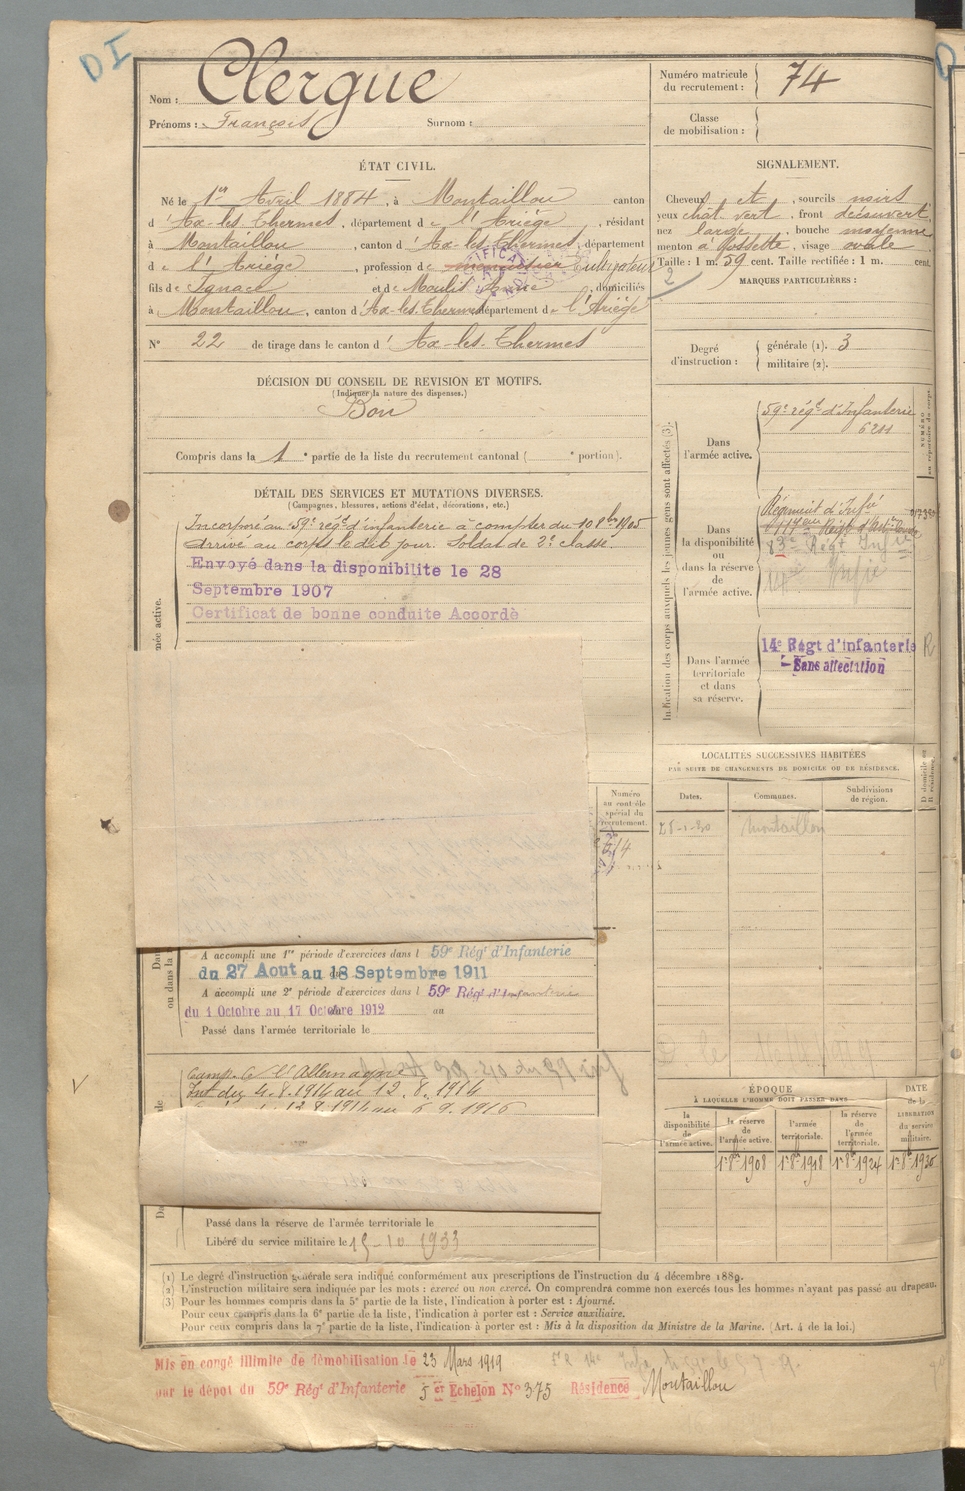 DI
Nom : Clergue
Prénoms : François Surnom :
Numéro matricule du recrutement : 74
Classe de mobilisation :
ÉTAT CIVIL.
Né le 1er Avril 1884, à Montaillou canton
d'Ax-les-Thermes, département de l'Ariège, résidant
à Montaillou, canton d'Ax-les-Thermes, département
de l'Ariège, profession de Cultivateur
fils de Ignace et de Moulis Anne, domiciliés
à Montaillou, canton d'Ax-les-Thermes département de l'Ariège
N° 22 de tirage dans le canton d'Ax-les-Thermes
SIGNALEMENT.
Cheveux et , sourcils noirs
yeux chât. vert, front découvert,
nez large, bouche moyenne
menton à fossette, visage ovale
Taille : 1 m. 59 cent. Taille rectifiée : 1 m. cent.
2
MARQUES PARTICULIÈRES :
Degré d'instruction : générale (1). 3
militaire (2).
DÉCISION DU CONSEIL DE REVISION ET MOTIFS.
(Indiquer la nature des dispenses.)
Bon
Compris dans la 1 e partie de la liste du recrutement cantonal ( e portion).
DÉTAIL DES SERVICES ET MUTATIONS DIVERSES.
(Campagnes, blessures, actions d'éclat, décorations, etc.)
Incorporé au 59e régt d'infanterie à compter du 10 8bre 1905
Arrivé au corps le dit jour. Soldat de 2e classe.
Envoyé dans la disponibilite le 28
Septembre 1907
Certificat de bonne conduite Accordè
Indication des corps auxquels les jeunes gens sont affectés (3).
NUMÉRO au répertoire du corps
Dans l'armée active.
59e régt d'Infanterie
6211
Dans la disponibilité ou dans la réserve de l'armée active.
Régiment d'Infie
83e Régt Infie
14e Infie
Dans l'armée territoriale et dans sa réserve.
14e Régt d'infanterie R
Sans affectation
LOCALITÉS SUCCESSIVES HABITÉES
PAR SUITE DE CHANGEMENTS DE DOMICILE OU DE RÉSIDENCE.
Dates. Communes. Subdivisions de région. D domicile ou R résidence.
Montaillou
Numéro au contrôle spécial du recrutement.
A accompli une 1re période d'exercices dans l 59e Régt d'Infanterie
du 27 Aout au 18 Septembre 1911
A accompli une 2e période d'exercices dans l 59e Régt d'Infanterie
du 1 Octobre au 17 Octobre 1912 au
Passé dans l'armée territoriale le
Camp. C l'Allemagne
Int du 4.8.1914 au 12.8.1914
12.8.1914 au 6.9.1916
Passé dans la réserve de l'armée territoriale le
Libéré du service militaire le 15-10 1933
ÉPOQUE
À LAQUELLE L'HOMME DOIT PASSER DANS
DATE de la LIBÉRATION du service militaire.
la disponibilité de l'armée active. la réserve de l'armée active. l'armée territoriale. la réserve de l'armée territoriale.
1er 8bre 1908 1er 8bre 1918 1er 8bre 1924 1er 8bre 1930
(1) Le degré d'instruction générale sera indiqué conformément aux prescriptions de l'instruction du 4 décembre 1889.
(2) L'instruction militaire sera indiquée par les mots : exercé ou non exercé. On comprendra comme non exercés tous les hommes n'ayant pas passé au drapeau.
(3) Pour les hommes compris dans la 5e partie de la liste, l'indication à porter est : Ajourné.
Pour ceux compris dans la 6e partie de la liste, l'indication à porter est : Service auxiliaire.
Pour ceux compris dans la 7e partie de la liste, l'indication à porter est : Mis à la disposition du Ministre de la Marine. (Art. 4 de la loi.)
Mis en congé illimité de démobilisation le 23 Mars 1919
par le dépôt du 59e Régt d'Infanterie 5e Echelon N° 375 Résidence Montaillou